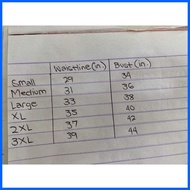 Waistline(in) Bust(in)
Small 29 34
Medium 31 36
Large 33 38
XL 35 40
2XL 37 42
3XL 39 44